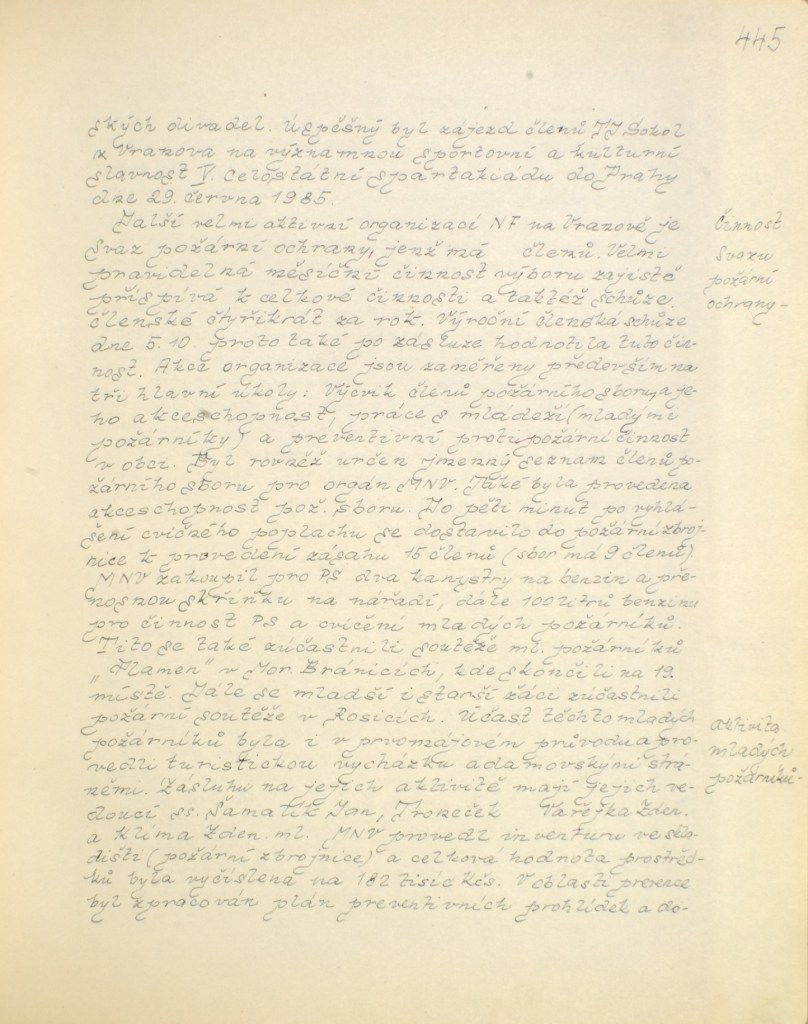 445
ských divadel. Úspěšný byl zájezd členů TJ Sokol
z Vranova na významnou sportovní a kulturní
slavnost V. celostátní spartakiádu do Prahy
dne 29. června 1985.
Další velmi aktivní organizací NF na Vranově je
Svaz požární ochrany, jenž má členů. Velmi
pravidelná měsíční činnost výboru zajistě
přispívá k celkové činnosti a taktéž schůze
členské čtyřikrát za rok. Výroční členská schůze
dne 5.10. proto také po zásluze hodnotila tuto čin-
nost. Akce organizace jsou zaměřeny především na
tři hlavní úkoly: Výcvik členů požárního sboru, a je-
ho akceschopnost, práce s mládeží (mladými
požárníky) a preventivní protipožární činnost
v obci. Byl rovněž určen jmenný seznam členů po-
žárního sboru pro orgán MNV. Také byla provedena
akceschopnost pož. sboru. Do pěti minut po vyhlá-
šení cvičného poplachu se dostavilo do požární zbroj-
nice k provedení zásahu 15 členů (sbor má 9 členů).
MNV zakoupil pro PS dva kanystry na benzin a pře-
nosnou skříňku na nářadí, dále 100 litrů benzinu
pro činnost PS a cvičení mladých požárníků.
Tito se také zúčastnili soutěže ml. požárníků
„Plamen" v Mor. Bránicích, kde skončili na 19.
místě. Dále se mladší i starší žáci zúčastnili
požární soutěže v Rosicích. Účast těchto mladých
požárníků byla i v prvomájovém průvodu a pro-
vedli turistickou vycházku adamovskými strá-
němi. Zásluhu na jejich aktivitě mají jejich ve-
doucí ss. Šamalík Jan, Troneček Vařejka Zden.
a Klíma Zden. ml. MNV provedl inventuru ve skla-
dišti (požární zbrojnice) a celková hodnota prostřed-
ků byla vyčíslena na 182 tisíc Kčs. V oblasti prevence
byl zpracován plán preventivních prohlídek a do-
Činnost
Svazu
požární
ochrany-
Aktivita
mladých
požárníků-